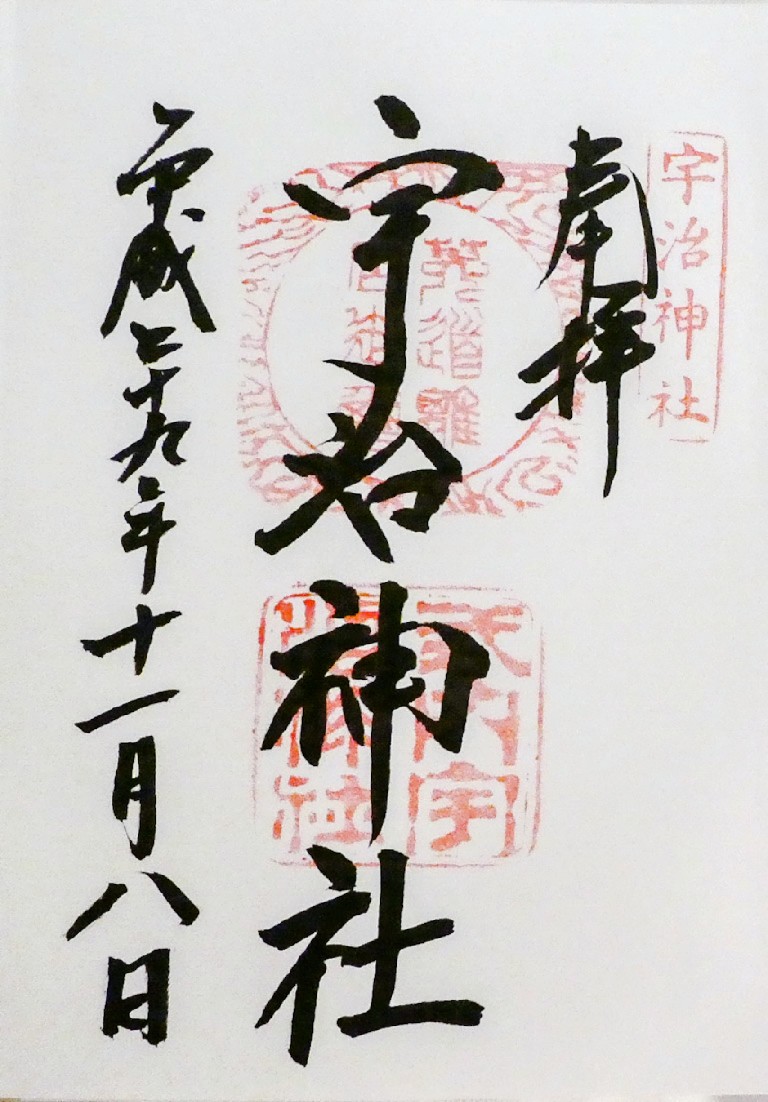 宇治神社
奉拝
宇治神社
平成二十九年十一月八日